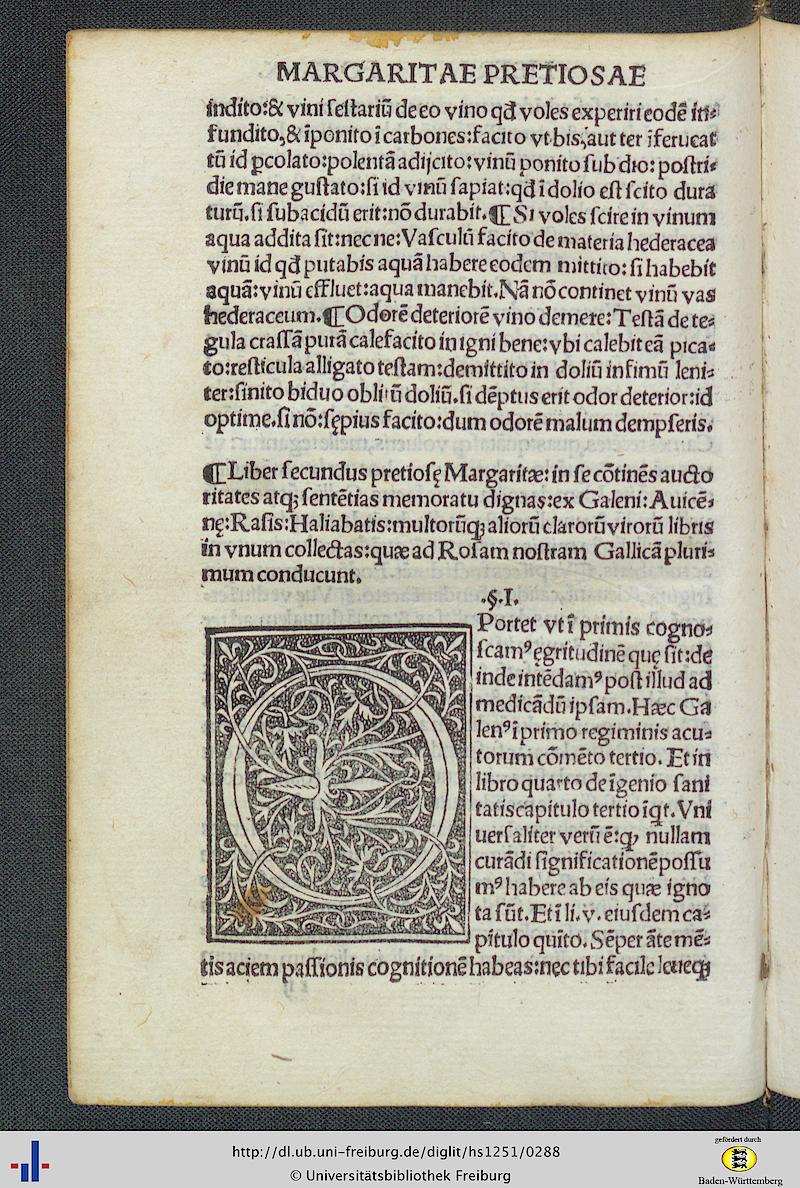 MARGARITAE PRETIOSAE
indito:& vini sestariū de eo vino qđ voles experiri eodē in⸗
fundito,& īponito ī carbones:facito vt bis, aut ter īferueat
tū id ꝑcolato:polentā adijcito:vinū ponito sub dio: postri⸗
die mane gustato:si id vinū sapiat:qđ ī dolio est scito dura
turū.si subacidū erit:nō durabit.¶ Si voles scire in vinum
aqua addita sit:necne:Vasculū facito de materia hederacea
vinū id qđ putabis aquā habere eodem mittito: si habebit
aquā:vinū effluet:aqua manebit.Nā nō continet vinū vas
hederaceum.¶ Odorē deteriorē vino demere:Testā de te⸗
gula crassā purā calefacito in igni bene:vbi calebit eā pica⸗
to:resticula alligato testam:demittito in doliū infimū leni⸗
ter:sinito biduo oblitū doliū.si dēptus erit odor deterior:id
optime.si nō:sępius facito:dum odorē malum dempseris.
¶ Liber secundus pretiosę Margaritæ: in se cōtinēs aucto
ritates atqꝫ sentētias memoratu dignas:ex Galeni:Auicē⸗
nę:Rasis:Haliabatis:multorūqꝫ aliorū clarorū virorū libris
in vnum collectas:quæ ad Rosam nostram Gallicā pluri⸗
mum conducunt.
.§.I.
OPortet vt ī primis cogno⸗
scamꝰ ęgritudinē quę sit:de
inde intēdamꝰ post illud ad
medicādū ipsam.Hæc Ga
lenꝰ ī primo regiminis acu⸗
torum cōmēto tertio. Et in
libro quarto de īgenio sani
tatis capitulo tertio īqt. Vni
uersaliter verū ē:qꝫ nullam
curādi significationē possu
mꝰ habere ab eis quæ igno
ta sūt. Et ī li.v. eiusdem ca⸗
pitulo quīto. Sēper āte mē⸗
tis aciem passionis cognitionē habeas:nec tibi facile leueqꝫ
http://dl.ub.uni-freiburg.de/diglit/hs1251/0288
© Universitätsbibliothek Freiburg
gefördert durch
Baden-Württemberg